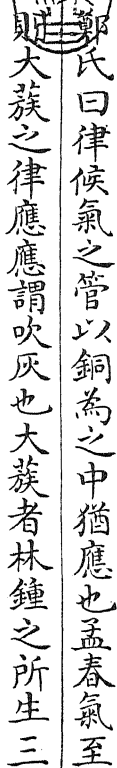 鄭氏曰律候氣之管以銅為之中猶應也孟春氣至
則大蔟之律應應謂吹灰也大蔟者林鍾之所生三